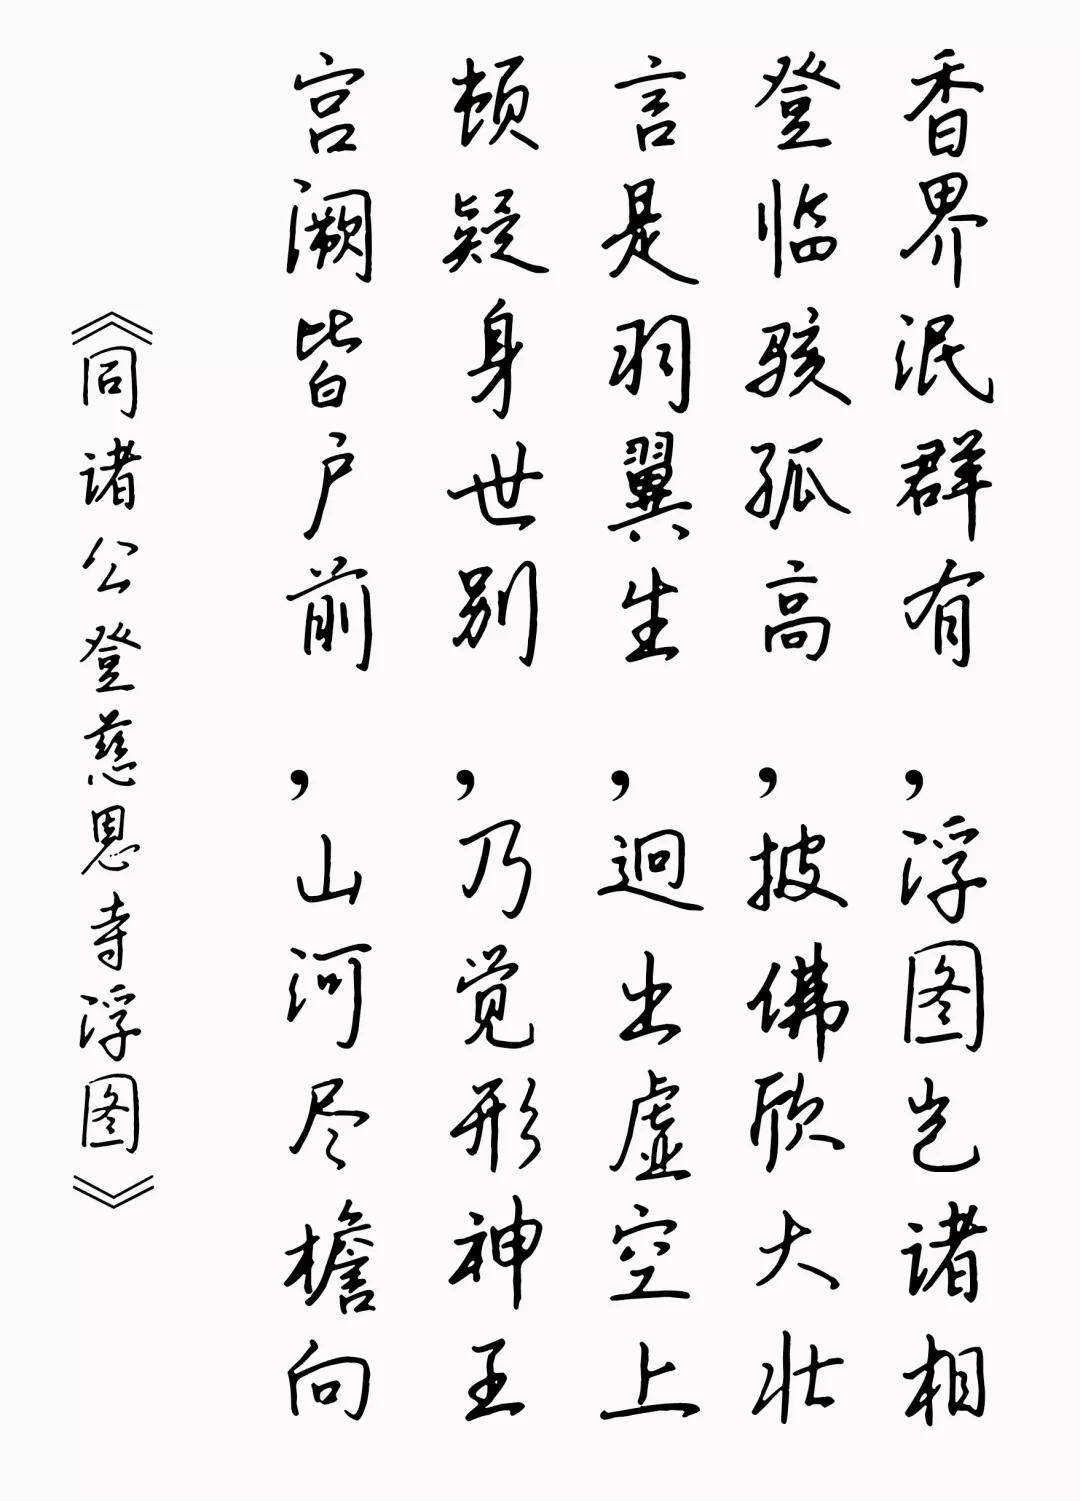 香界泯群有，浮图岂诸相
登临骇孤高，披佛欣大壮
言是羽翼生，迥出虚空上
顿疑身世别，乃觉形神王
宫阙皆户前，山河尽檐向
《同诸公登慈恩寺浮图》